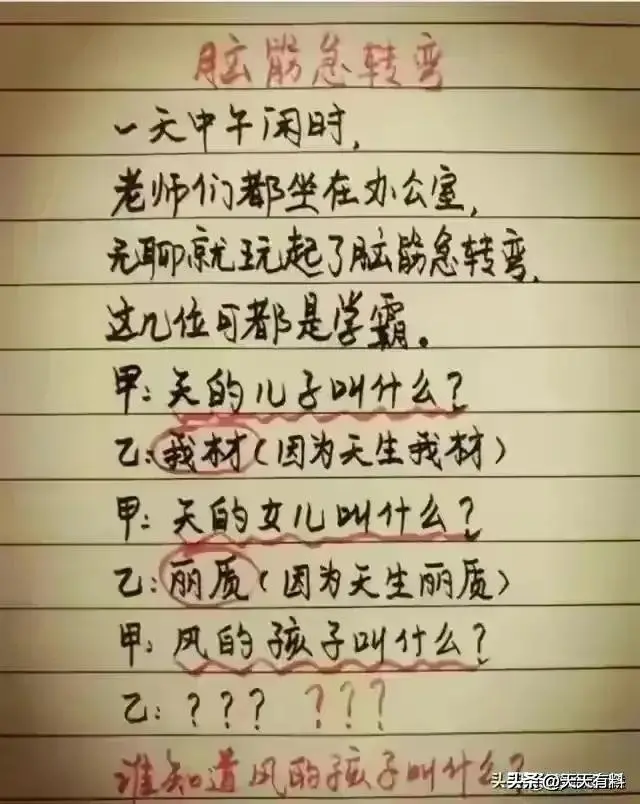 脑筋急转弯
一天中午闲时,
老师们都坐在办公室,
无聊就玩起了脑筋急转弯,
这几位可都是学霸。
甲:天的儿子叫什么?
乙:我材(因为天生我材)
甲:天的女儿叫什么?
乙:丽质(因为天生丽质)
甲:风的孩子叫什么?
乙:??? ???
谁知道风的孩子叫什么?
头条@天天有料